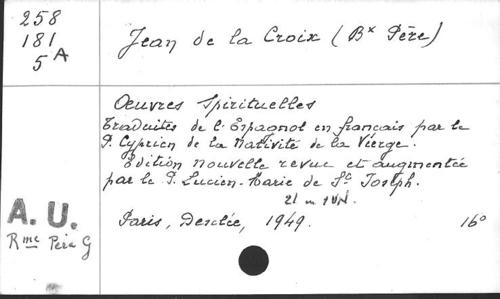 258
181
5 A
Jean de la Croix (Bx Père)
Oeuvres Spirituelles
Traduites de l'Espagnol en français par le
P. Cyprien de la Nativité de la Vierge.
Edition nouvelle revue et augmentée
par le P. Lucien-Marie de St Joseph.
Paris, Desclée, 1949. 16°
A. U.
Rme Père G